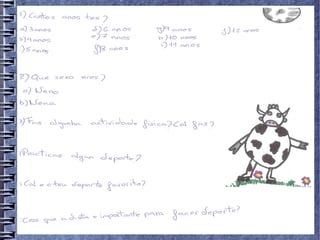 1) Cantos anos tes?
a) 3 anos d) 6 anos g) 9 anos j) 12 anos
b) 4 anos e) 7 anos h) 10 anos
c) 5 anos f) 8 anos i) 11 anos
2) Que sexo eres?
a) Neno
b) Nena
3) Fas algunha actividade física? Cal fas?
Practicas algun deporte?
Cal e o teu deporte favorito?
Cres que a dieta e importante para facer deporte?